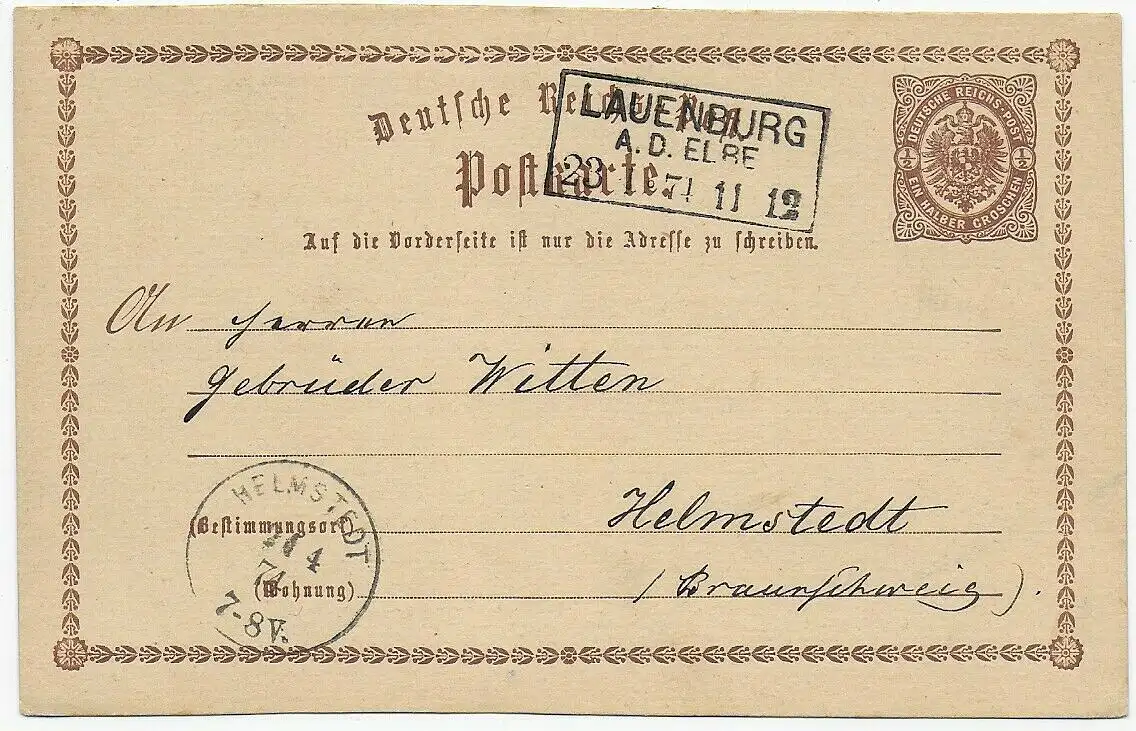 Deutsche Reichs-Post.
Postkarte.
LAUENBURG
A. D. ELBE
23 74 11 12
DEUTSCHE REICHS-POST
½ ½
EIN HALBER GROSCHEN
Auf die Vorderseite ist nur die Adresse zu schreiben.
An Herren
Gebrüder Witten
Helmstedt
(Bestimmungsort)
(Wohnung)
(Braunschweig).
HELMSTEDT
4
74
7-8 V.